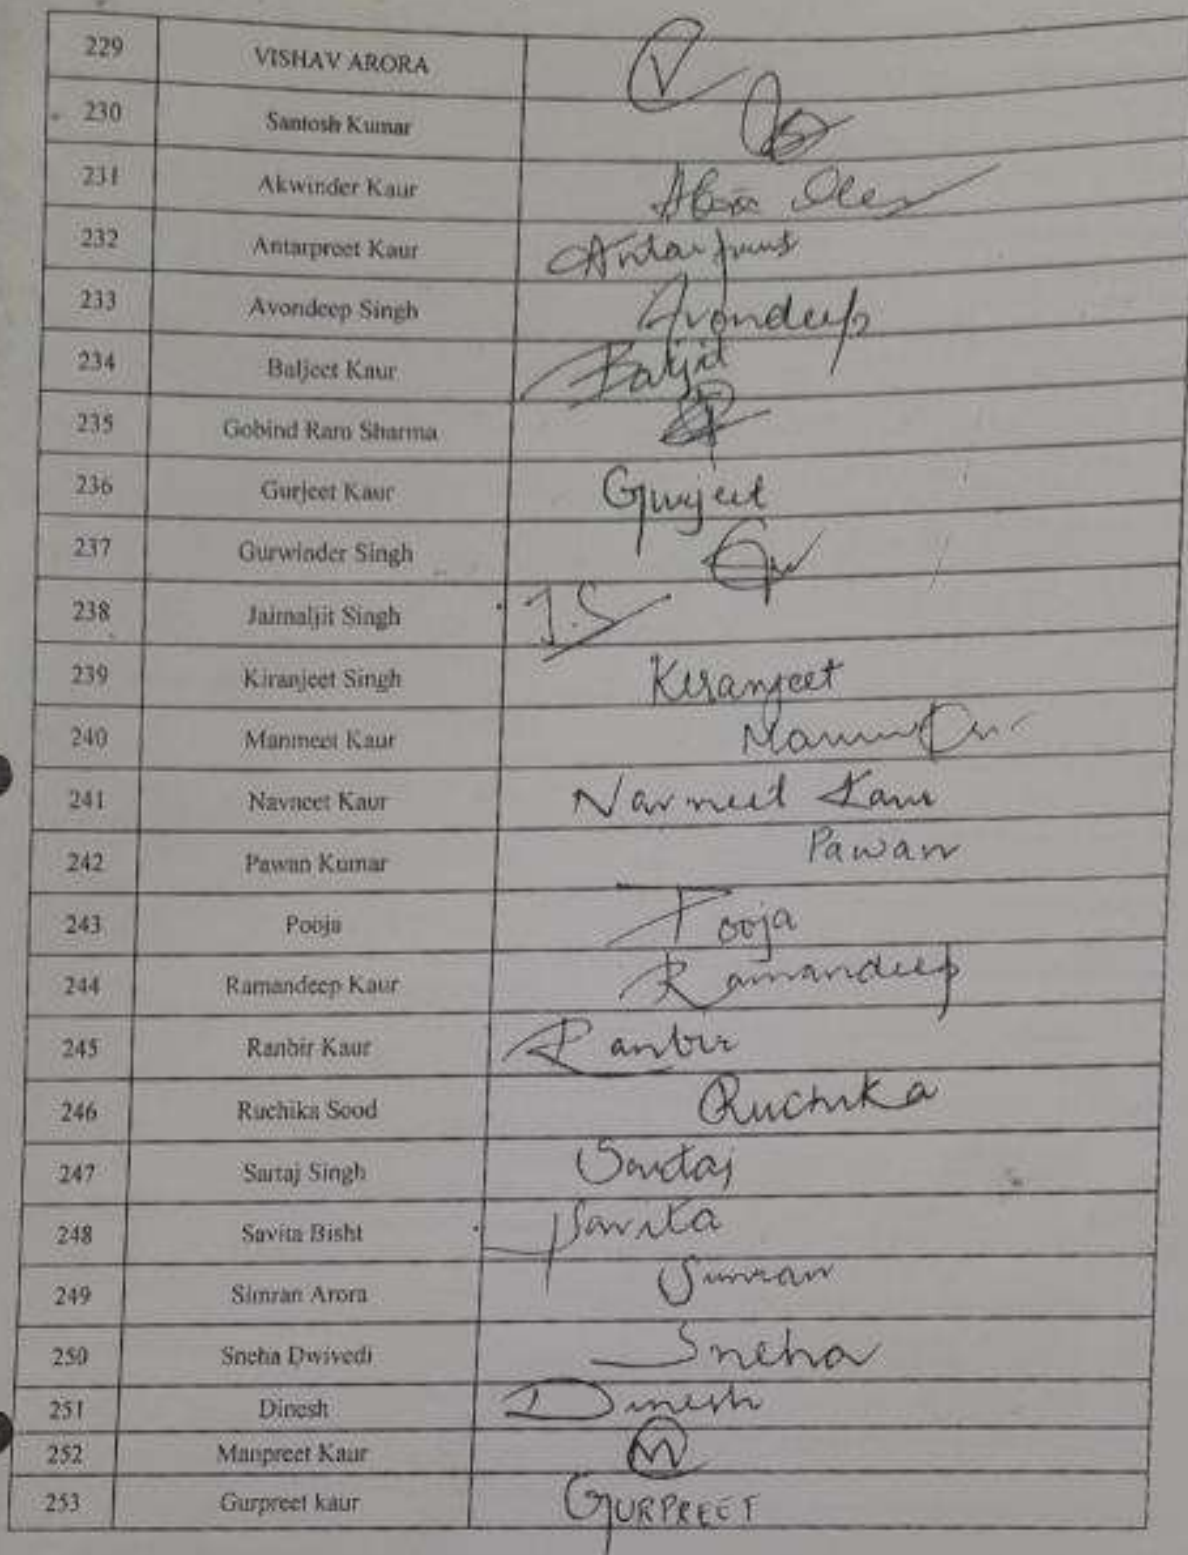 229 VISHAV ARORA V
230 Santosh Kumar
231 Akwinder Kaur
232 Antarpreet Kaur Antarpreet
233 Avondeep Singh Avondeep
234 Baljeet Kaur Baljit
235 Gobind Ram Sharma
236 Gurjeet Kaur Gurjeet
237 Gurwinder Singh Gu
238 Jaimaljit Singh J.S
239 Kiranjeet Singh Kiranjeet
240 Manmeet Kaur
241 Navneet Kaur Navneet Kaur
242 Pawan Kumar Pawan
243 Pooja Pooja
244 Ramandeep Kaur Ramandeep
245 Ranbir Kaur Ranbir
246 Ruchika Sood Ruchika
247 Sartaj Singh Sartaj
248 Savita Bisht Savita
249 Simran Arora Simran
250 Sneha Dwivedi Sneha
251 Dinesh Dinesh
252 Manpreet Kaur M
253 Gurpreet kaur GURPREET